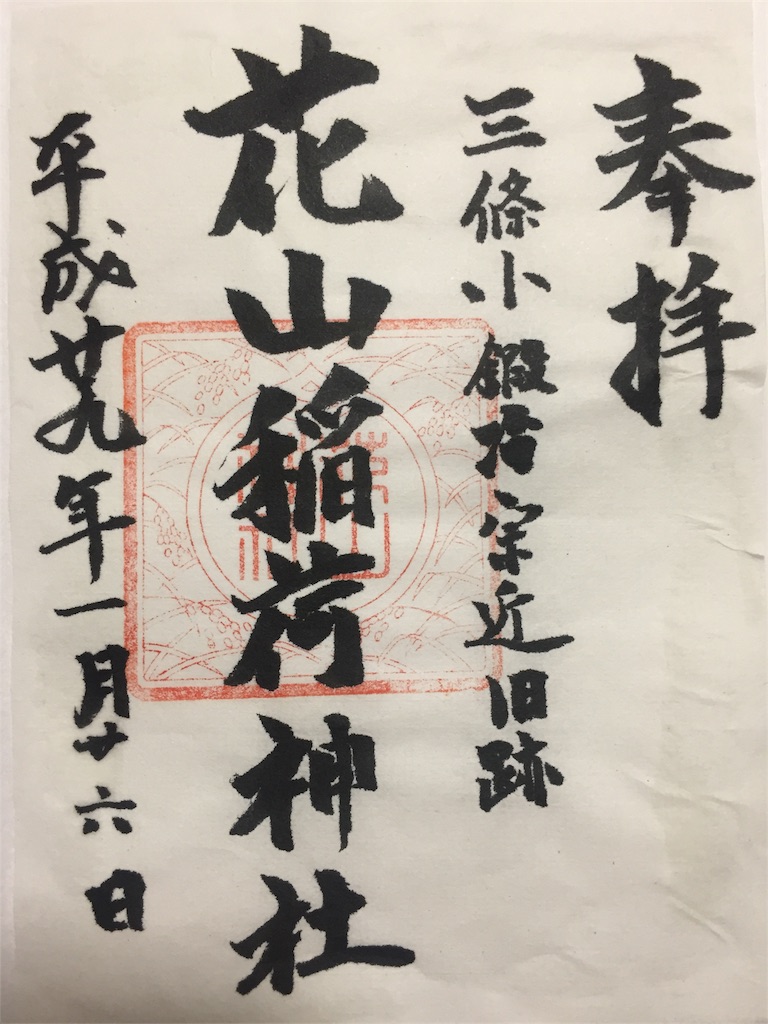 奉拝
三條小鍛冶宗近旧跡
花山稲荷神社
平成廿九年一月廿六日